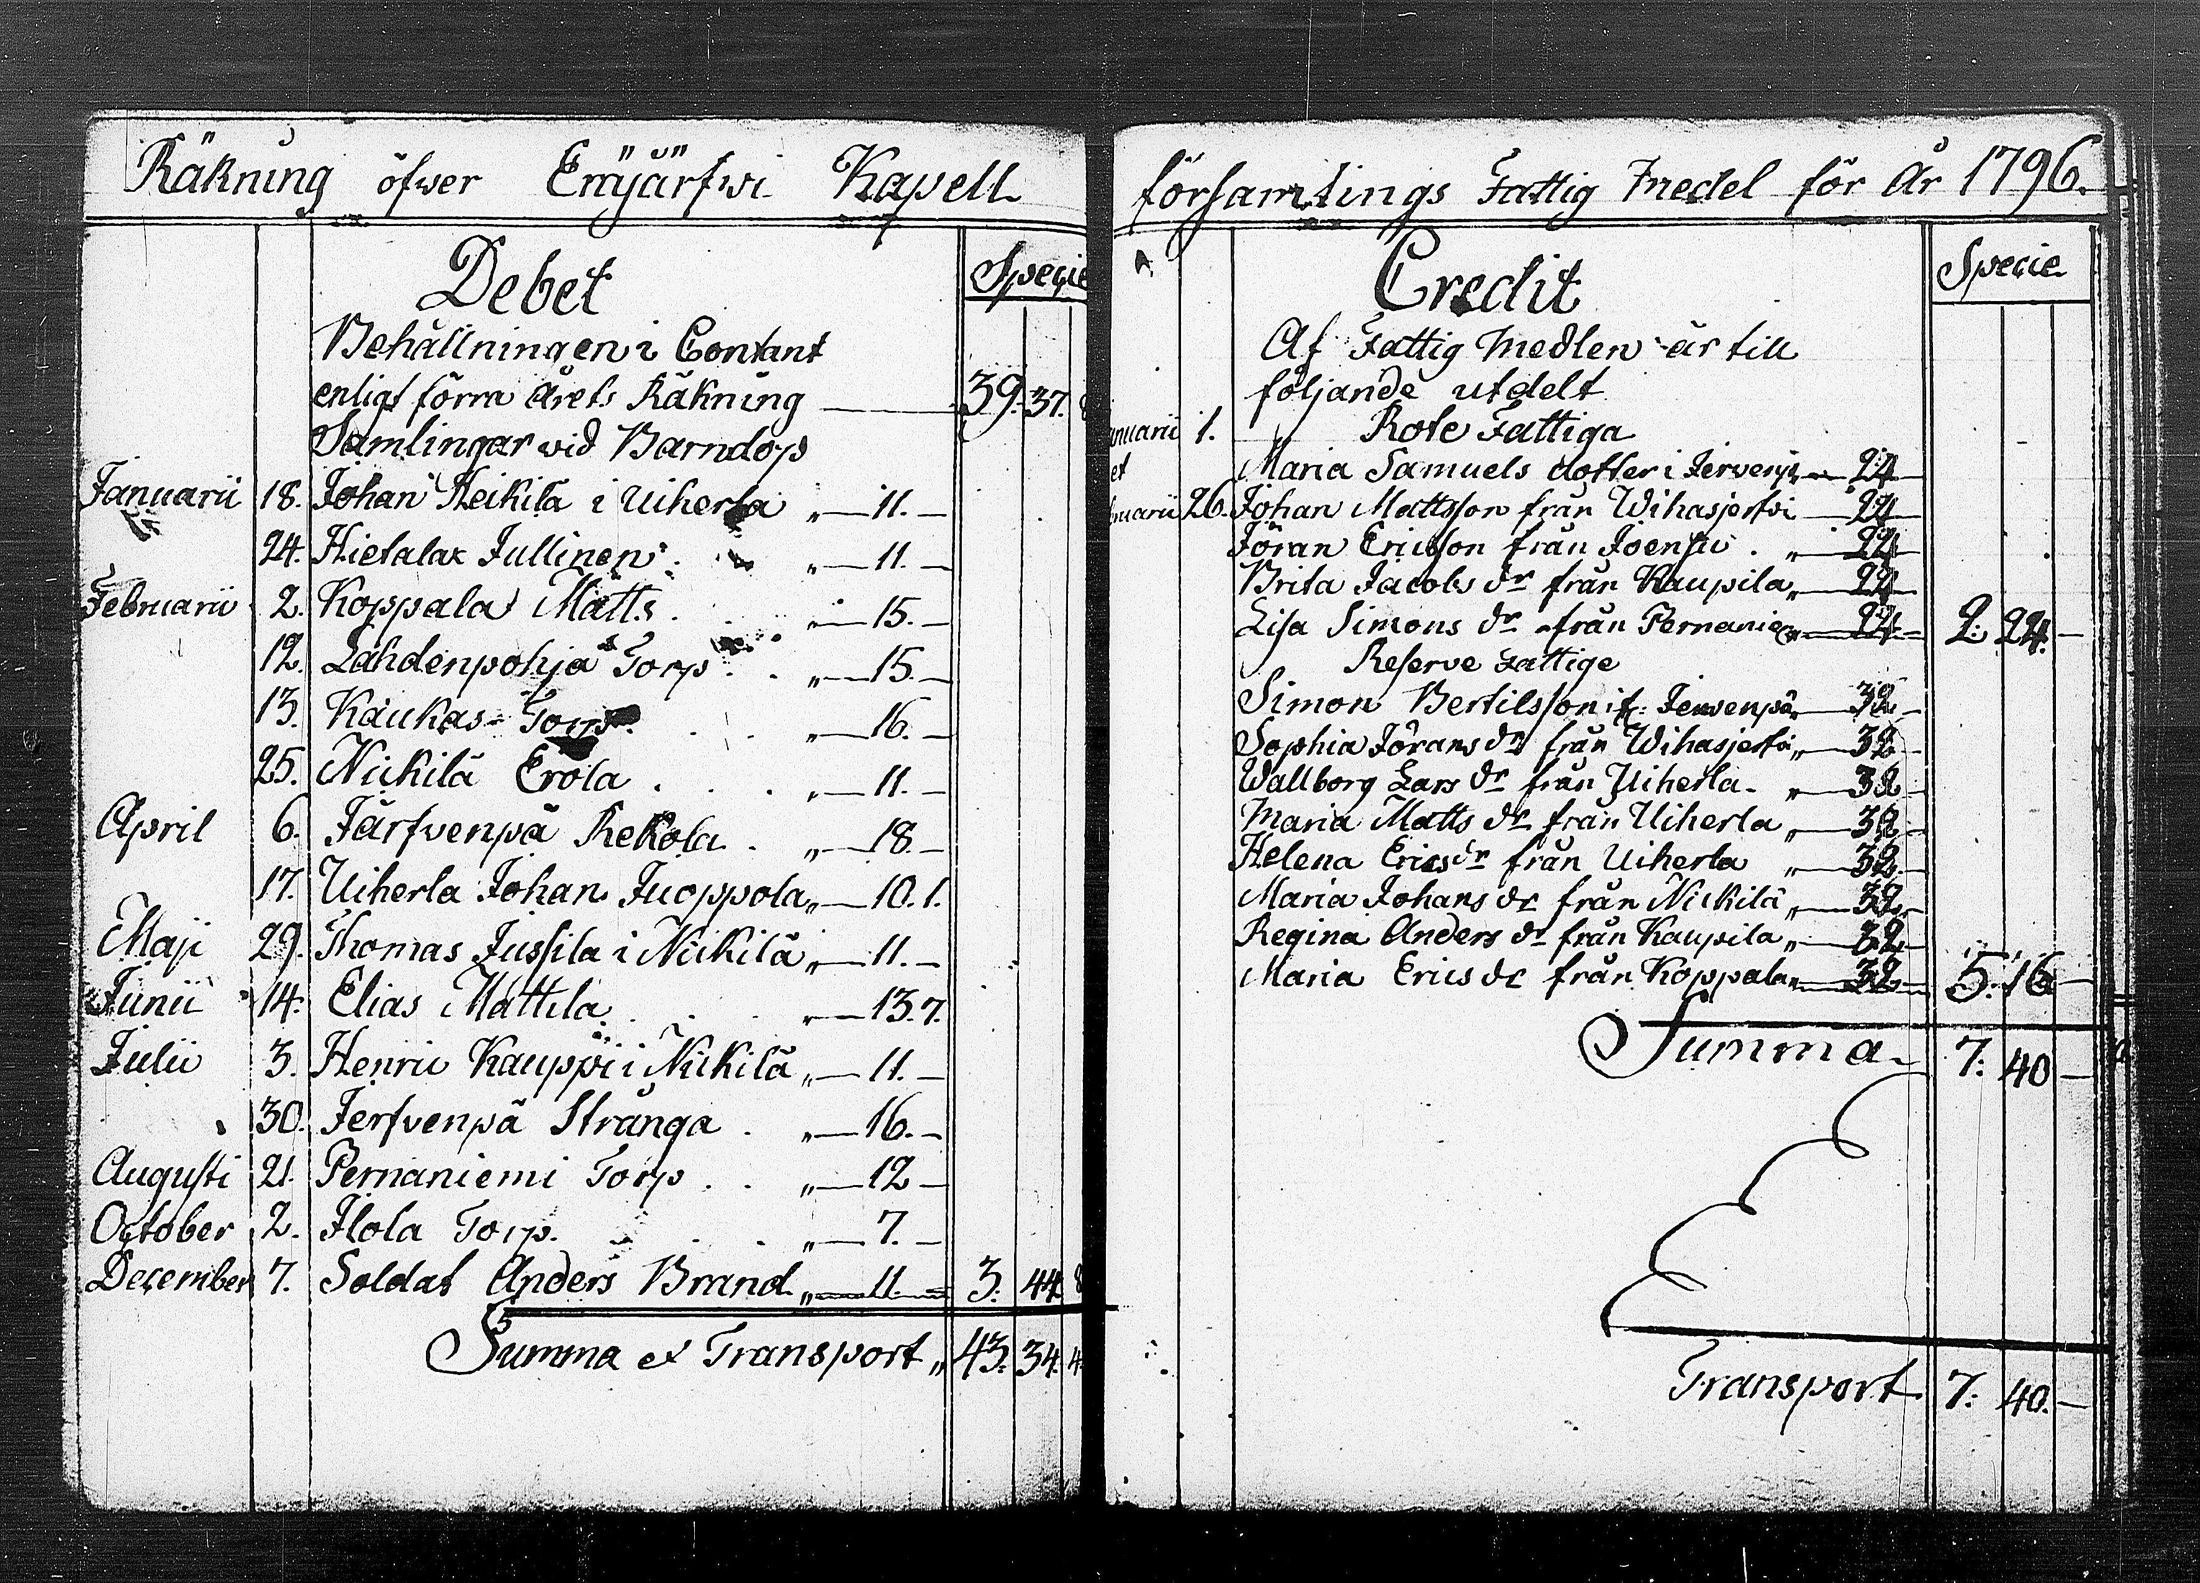 Räkning öfwer Enyjärfwi Kapell
Debet
Specie
Behållningen i Contant
enligt förra Årets Räkning — 39. 37. 8
Samlingar wid Barndop
Januarii 18. Johan Heikila i Uiherla „ — 11. —
24. Hietalax Jullinen . „ — 11. —
Februarii 2. Koppala Matts . . „ — 15. —
12. Lahdenpohja Torp . . „ — 15. —
13. Kaukas Torp . . „ — 16. —
25. Nickilä Erola . . . „ — 11. —
April 6. Järfvenpä Rekola . „ — 18. —
17. Uiherla Johan Juoppola „ — 10. 1.
Maji 29. Thomas Jussila i Nickilä „ — 11. —
Junii 14. Elias Mattila . . . „ — 13. 7.
Julii 3. Henric Kauppi i Nickilä „ — 11. —
30. Jerfvenpä Strånga . „ — 16. —
Augusti 21. Pernaniemi Torp . . „ — 12 —
October 2. Ilola Torp. . . . „ — 7. —
December 7. Soldat Anders Brand „ — 11. — 3. 44. 8
Summa et Transport „ 43. 34. 4.
församlings Fattig Medel för År 1796.
Credit
Specie
Af Fattig Medlen är till
följande utdelt
anuarii 1. Rote Fattiga
et Maria Samuels dotter i — 24 —
bruarii 26. Johan Mattsson från Wihasjerfvi — 24 —
Jöran Ericsson från Joensu . „ — 24 —
Brita Jacobs dr från Kaupila „ — 24 —
Lisa Simons dr från Pernanie „ — 24. — 2: 24. —
Reserve Fattige
Simon Bertilsson if: Jervenpä „ — 32 —
Sophia Jörans dr från Wihasjerfvi „ — 32 —
Wallborg Lars dr från Uiherla . „ — 32 —
Maria Matts dr från Uiherla „ — 32 —
Helena Erics dr från Uiherla „ — 32. —
Maria Johans dr från Nickilä „ — 32. —
Regina Anders dr från Kaupila „ — 32 —
Maria Erics dr från Koppala „ — 32 — 5. 16 —
Summa . 7: 40 —
Transport. 7: 40. —